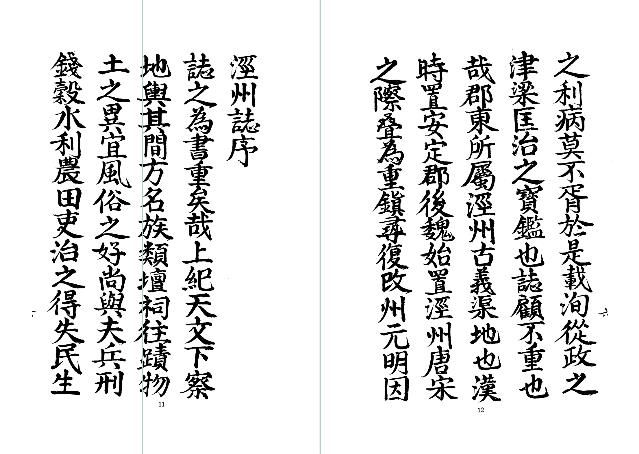 涇州誌序
誌之為書重矣哉上紀天文下察
地輿其間方名族類壇祠往蹟物
土之異宜風俗之好尚與夫兵刑
錢穀水利農田吏治之得失民生
11
之利病莫不胥於是載洵從政之
津梁匡治之寶鑑也誌顧不重也
哉郡東所屬涇州古義渠地也漢
時置安定郡後魏始置涇州唐宋
之際叠為重鎮尋復改州元明因
12